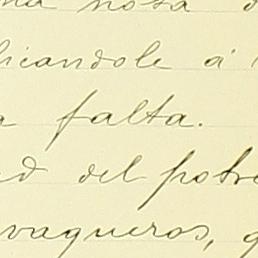 una nota d
licandole á
a falta.
ed del potre
vaqueros, q